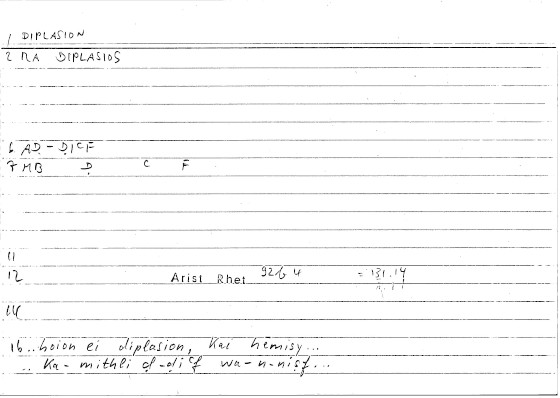 1 DIPLASION
2 ΠA DIPLASIOS
6 AḌ-ḌICF
7 MB Ḍ C F
11
12 Arist Rhet 92b4 = 131.14
14
16..hoion ei diplasion, kai hēmisy...
.. Ka-mithli ḍ-ḍiʿf wa-n-niṣf...